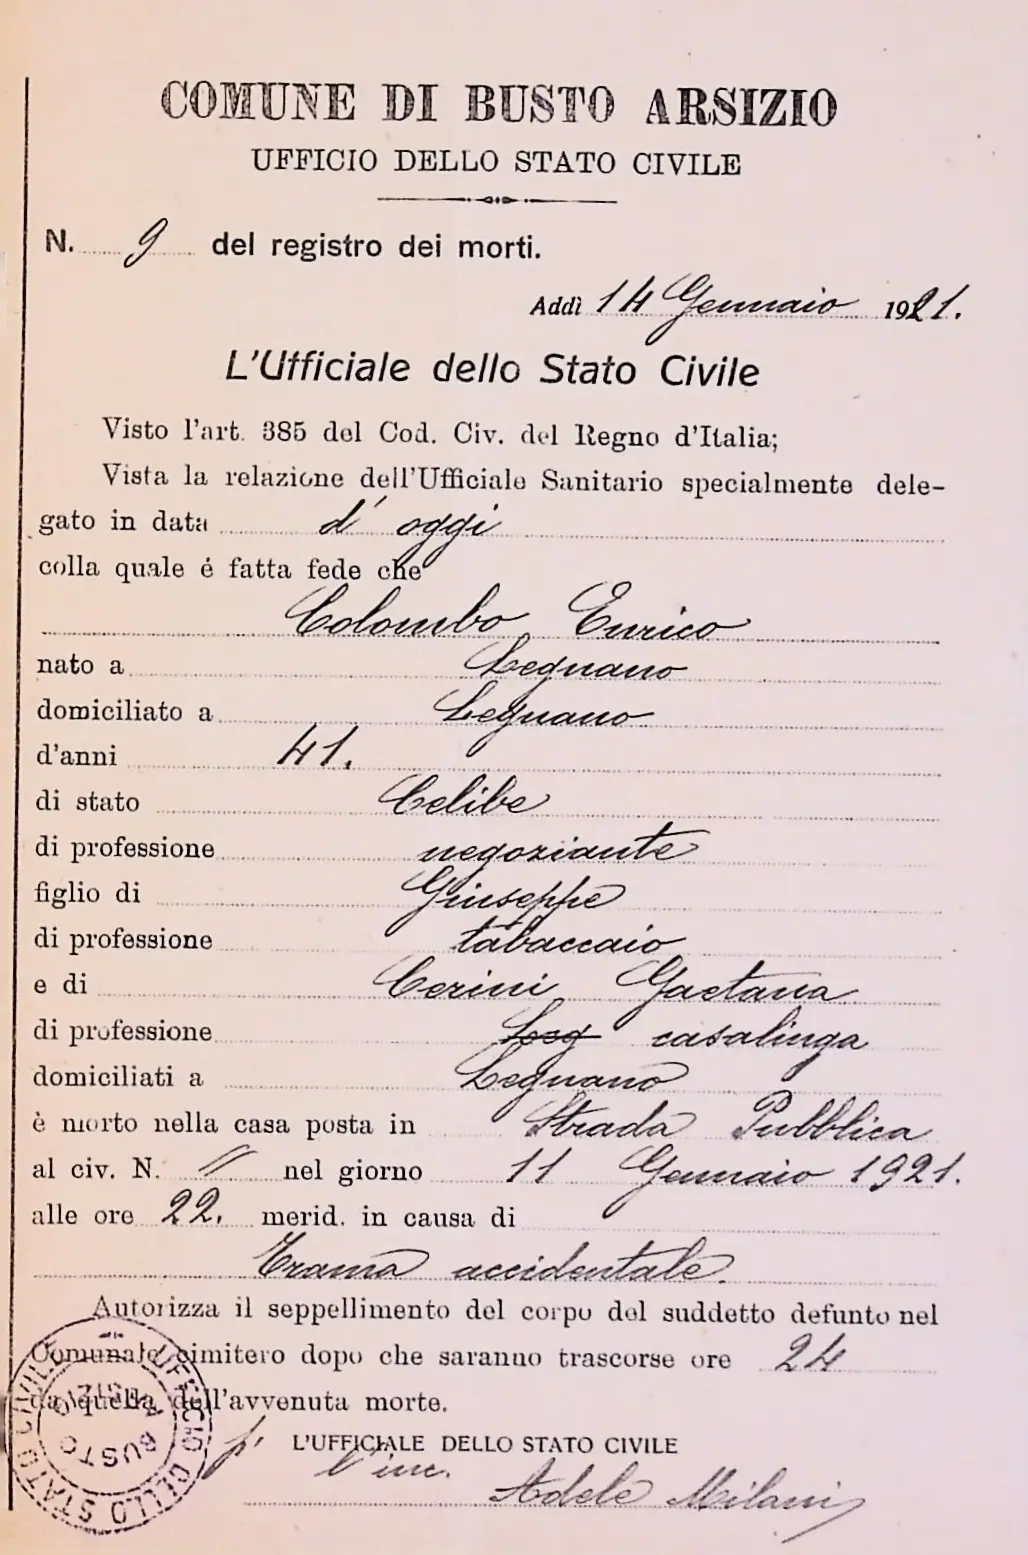 COMUNE DI BUSTO ARSIZIO
UFFICIO DELLO STATO CIVILE
N. 9 del registro dei morti.
Addì 14 Gennaio 1921.
L'Ufficiale dello Stato Civile
Visto l'art. 385 del Cod. Civ. del Regno d'Italia;
Vista la relazione dell'Ufficiale Sanitario specialmente dele-
gato in data d'oggi
colla quale é fatta fede che
Colombo Enrico
nato a Legnano
domiciliato a Legnano
d'anni 41.
di stato Celibe
di professione negoziante
figlio di Giuseppe
di professione tabaccaio
e di Cerini Gaetana
di professione Leg casalinga
domiciliati a Legnano
è morto nella casa posta in Strada Pubblica
al civ. N. // nel giorno 11 Gennaio 1921.
alle ore 22. merid. in causa di
Trama accidentale.
Autorizza il seppellimento del corpo del suddetto defunto nel
Comunale cimitero dopo che saranno trascorse ore 24
da quella dell'avvenuta morte.
UFFICIO DELLO STATO CIVILE
BUSTO ARSIZIO
p. L'UFFICIALE DELLO STATO CIVILE
l'inc.
Adele Milani